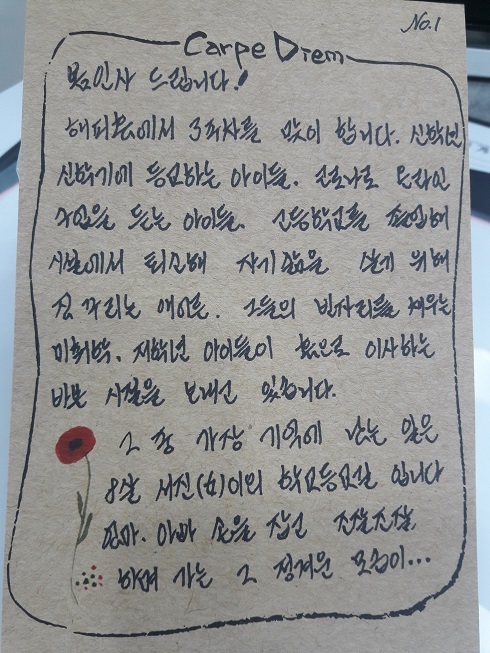 No.1
Carpe Diem
봄인사 드립니다!
해피홈에서 3주차를 맞이 합니다. 신학년
신학기에 등교하는 아이들. 코로나로 온라인
수업을 듣는 아이들. 고등학교를 졸업해
시설에서 퇴소해 자기삶을 살기 위해
짐 꾸리는 애이들. 그들의 빈자리를 채우는
미취학. 저학년 아이들이 홈으로 이사하는
바쁜 시절을 보내고 있습니다.
그 중 가장 기억에 남는 일은
8살 서진(女)이의 학교등교길 입니다
엄마. 아빠 손을 잡고 조잘조잘
하며 가는 그 정겨운 모습이...